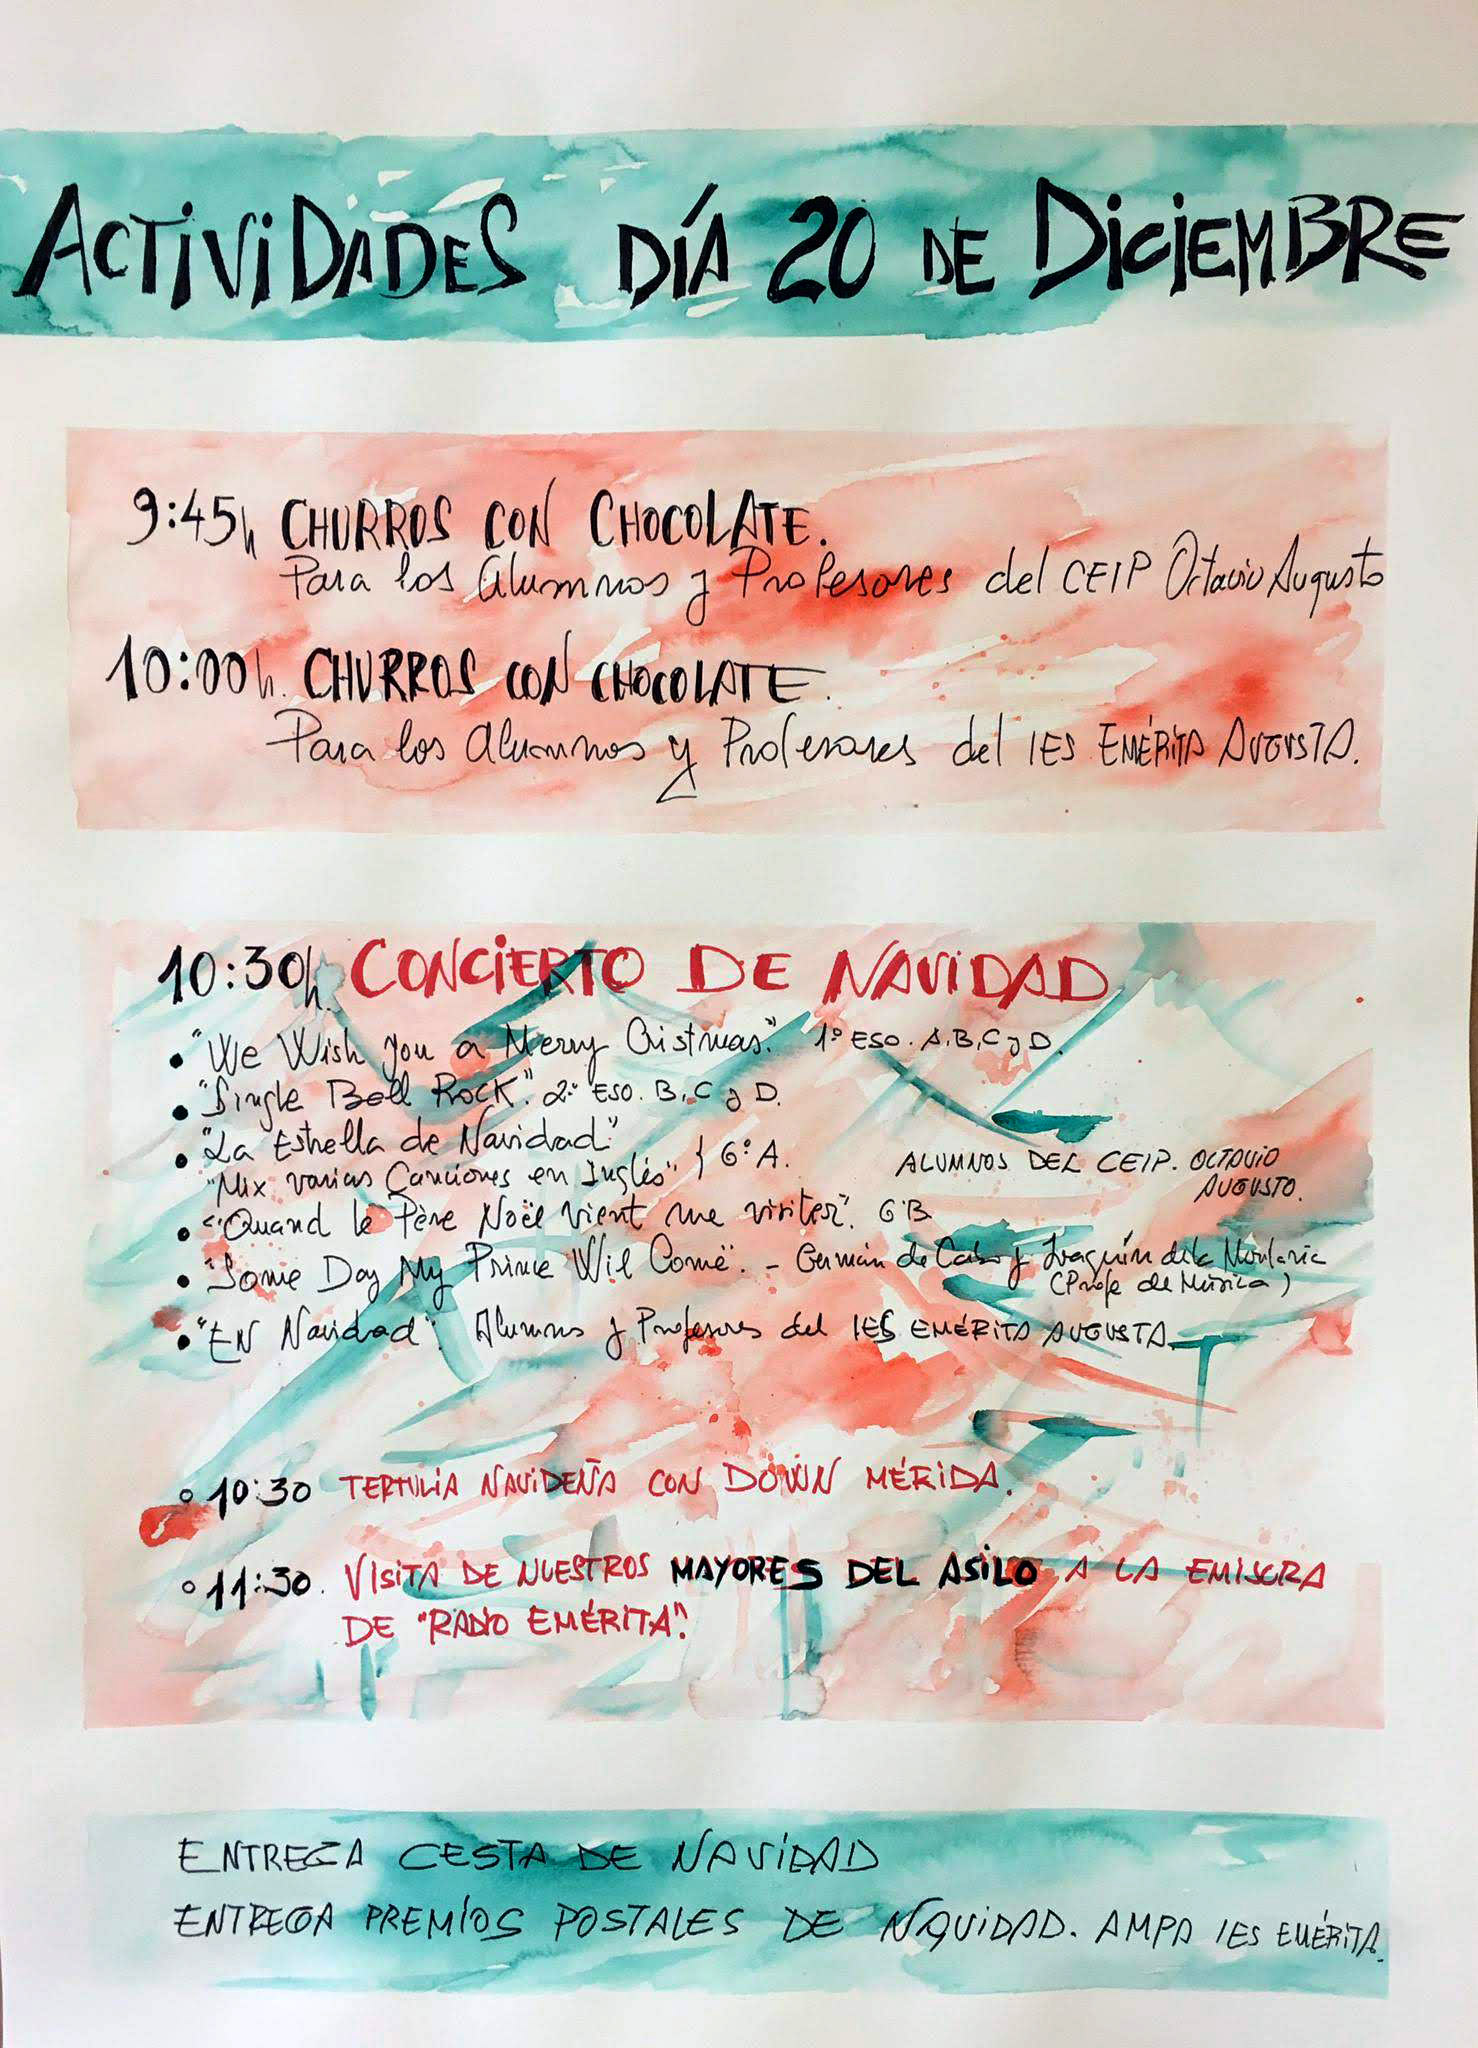 ACTIVIDADES DÍA 20 DE DICIEMBRE
9:45h CHURROS CON CHOCOLATE.
Para los Alumnos y Profesores del CEIP Octavio Augusto
10:00h. CHURROS CON CHOCOLATE.
Para los Alumnos y Profesores del IES EMÉRITA AUGUSTA.
10:30h. CONCIERTO DE NAVIDAD
• "We Wish you a Merry Cristmas". 1º ESO. A, B, C y D.
• "Single Bell Rock". 2º ESO. B, C y D.
• "La Estrella de Navidad"
"Mix varias Canciones en Inglés" } 6º A. ALUMNOS DEL CEIP. OCTAVIO
AUGUSTO.
• "Quand le Père Noël vient me visiter". 6ºB
• "Some Day My Prince Wil Come". - Germán de Cabo y Joaquín de la
(Profe de Música)
• "EN Navidad". Alumnos y Profesores del IES EMÉRITA AUGUSTA.
° 10:30 TERTULIA NAVIDEÑA CON DOWN MÉRIDA.
° 11:30. VISITA DE NUESTROS MAYORES DEL ASILO A LA EMISORA
DE "RADIO EMÉRITA".
ENTREGA CESTA DE NAVIDAD
ENTREGA PREMIOS POSTALES DE NAVIDAD. AMPA IES EMÉRITA.